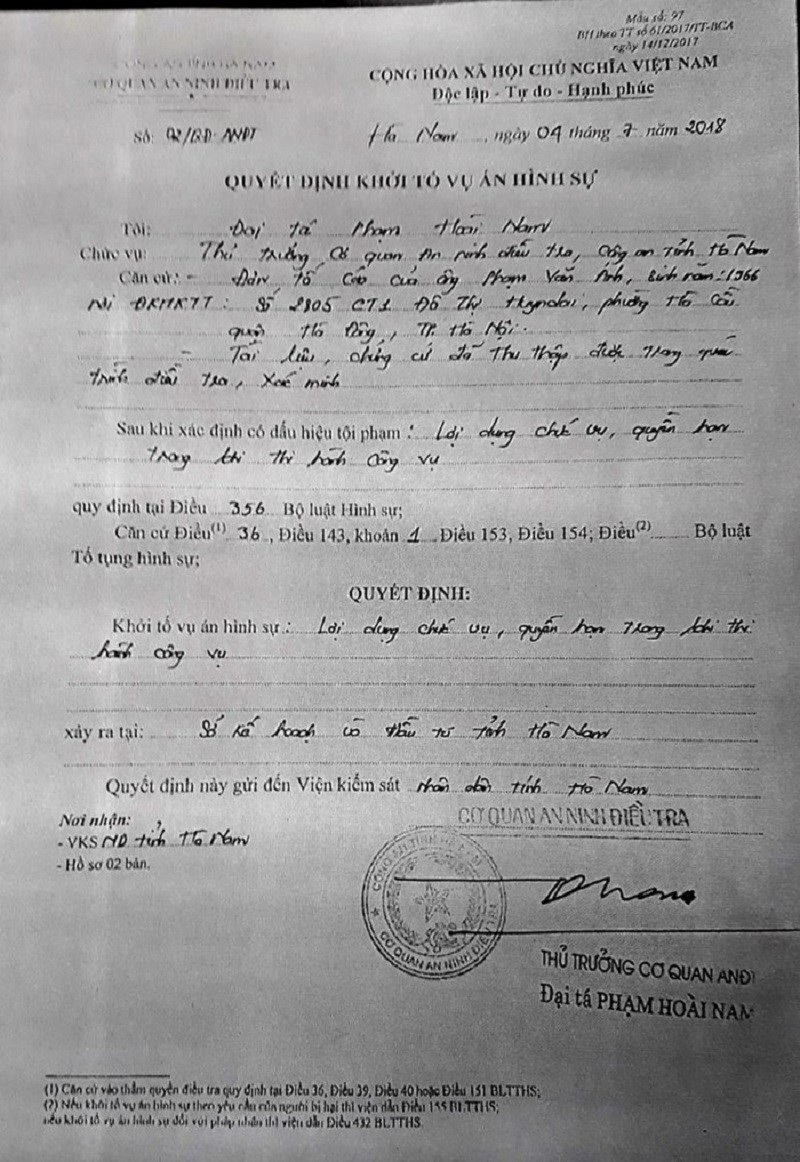 Mẫu số: 97
BH theo TT số 61/2017/TT-BCA
ngày 14/12/2017
CÔNG AN TỈNH HÀ NAM
CƠ QUAN AN NINH ĐIỀU TRA
CỘNG HÒA XÃ HỘI CHỦ NGHĨA VIỆT NAM
Độc lập - Tự do - Hạnh phúc
Số: 02/QĐ-ANĐT
Hà Nam, ngày 04 tháng 7 năm 2018
QUYẾT ĐỊNH KHỞI TỐ VỤ ÁN HÌNH SỰ
Tôi: Đại tá Phạm Hoài Nam
Chức vụ: Thủ trưởng Cơ quan An ninh điều tra, Công an tỉnh Hà Nam
Căn cứ: - Đơn tố cáo của ông Phạm Văn, sinh năm: 1966
Nơi ĐKHKTT: Số 2805 CT1 Đô Thị Huyndai, phường Hà Cầu
quận Hà Đông, TP. Hà Nội.
- Tài liệu, chứng cứ đã thu thập được trong quá
trình điều tra, xác minh
Sau khi xác định có dấu hiệu tội phạm: Lợi dụng chức vụ, quyền hạn
trong khi thi hành công vụ
quy định tại Điều 356 Bộ luật Hình sự;
Căn cứ Điều(1) 36, Điều 143, khoản 1 Điều 153, Điều 154; Điều(2) Bộ luật
Tố tụng hình sự;
QUYẾT ĐỊNH:
Khởi tố vụ án hình sự: Lợi dụng chức vụ, quyền hạn trong khi thi
hành công vụ
xảy ra tại: Sở kế hoạch và đầu tư tỉnh Hà Nam
Quyết định này gửi đến Viện kiểm sát nhân dân tỉnh Hà Nam
Nơi nhận:
- VKS ND tỉnh Hà Nam
- Hồ sơ 02 bản.
CƠ QUAN AN NINH ĐIỀU TRA
CÔNG AN TỈNH HÀ NAM
CƠ QUAN AN NINH ĐIỀU TRA
THỦ TRƯỞNG CƠ QUAN ANĐT
Đại tá PHẠM HOÀI NAM
(1) Căn cứ vào thẩm quyền điều tra quy định tại Điều 36, Điều 39, Điều 40 hoặc Điều 151 BLTTHS;
(2) Nếu khởi tố vụ án hình sự theo yêu cầu của người bị hại thì viện dẫn Điều 155 BLTTHS;
nếu khởi tố vụ án hình sự đối với pháp nhân thì viện dẫn Điều 432 BLTTHS.